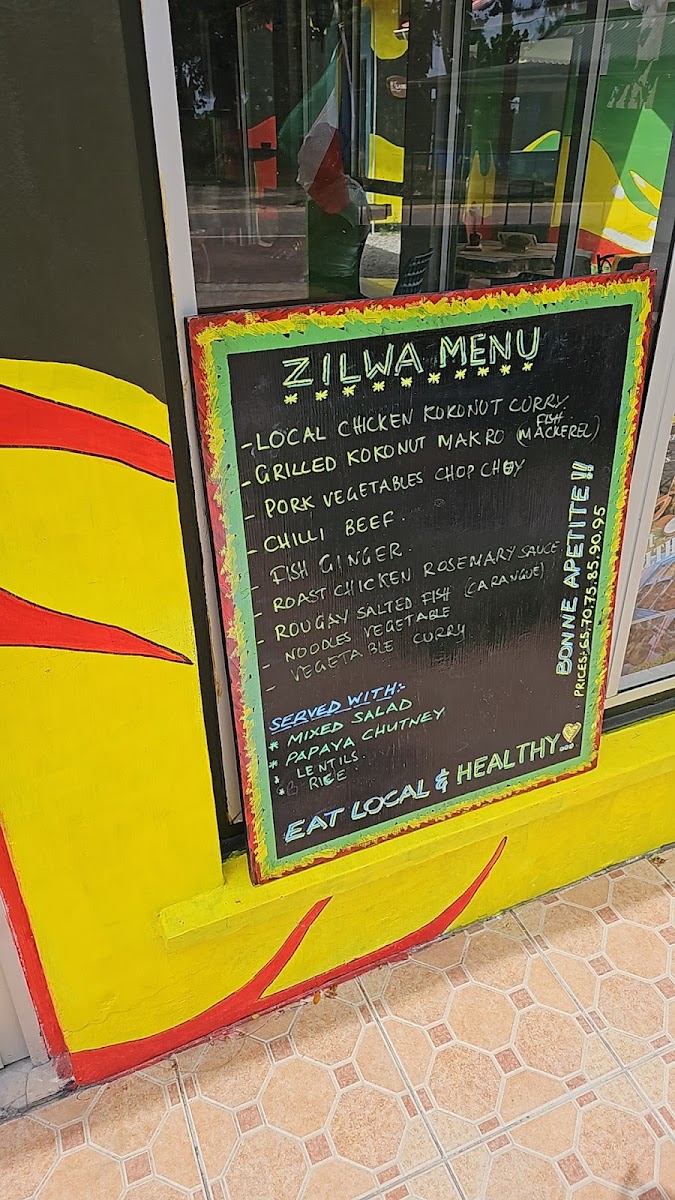 ZILWA MENU
* * * * * * * * *
- LOCAL CHICKEN KOKONUT CURRY
- GRILLED KOKONUT MAKRO (MACKEREL) FISH
- PORK VEGETABLES CHOP CHOY
- CHILLI BEEF.
FISH GINGER.
- ROAST CHICKEN ROSEMARY SAUCE
- ROUGAY SALTED FISH (CARANGUE)
- NOODLES VEGETABLE
- VEGETABLE CURRY
SERVED WITH:-
* MIXED SALAD
* PAPAYA CHUTNEY
* LENTILS.
* RICE
EAT LOCAL & HEALTHY...
BONNE APETITE!!
PRICES:-65,70,75.85.90.95